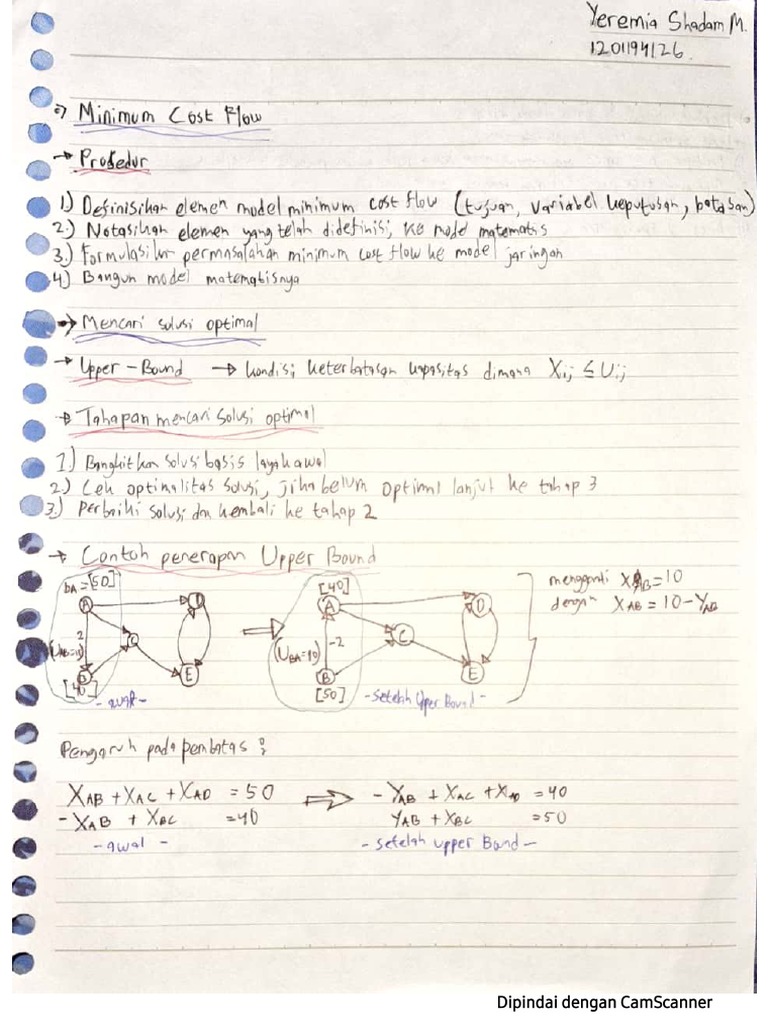 Yeremia Shadam M.
1201194126.
Minimum Cost Flow
→ Prosedur
1.) Definisikan elemen model minimum cost flow (tujuan, variabel keputusan, batasan)
2.) Notasikan elemen yang telah didefinisi, ke model matematis
3.) Formulasikan permasalahan minimum cost flow ke model jaringan
4.) Bangun model matematisnya
→ Mencari solusi optimal
→ Upper-Bound → kondisi keterbatasan kapasitas dimana Xij ≤ Uij
→ Tahapan mencari solusi optimal
1.) Bangkitkan solusi basis layak awal
2.) Cek optimalitas solusi, jika belum optimal lanjut ke tahap 3
3.) Perbaiki solusi dan kembali ke tahap 2
→ Contoh penerapan Upper Bound
bA = [50]
A
D
2
C
(UAB=10)
B
E
[40]
- awal -
[40]
A
D
-2
C
(UBA=10)
B
E
[50]
- setelah Upper Bound -
mengganti XAB = 10
dengan XAB = 10 - YAB
Pengaruh pada pembatas :
XAB + XAC + XAD = 50 ⇒ - YAB + XAC + XAD = 40
- XAB + XBC = 40 YAB + XBC = 50
- awal - - setelah upper Bound -
Dipindai dengan CamScanner